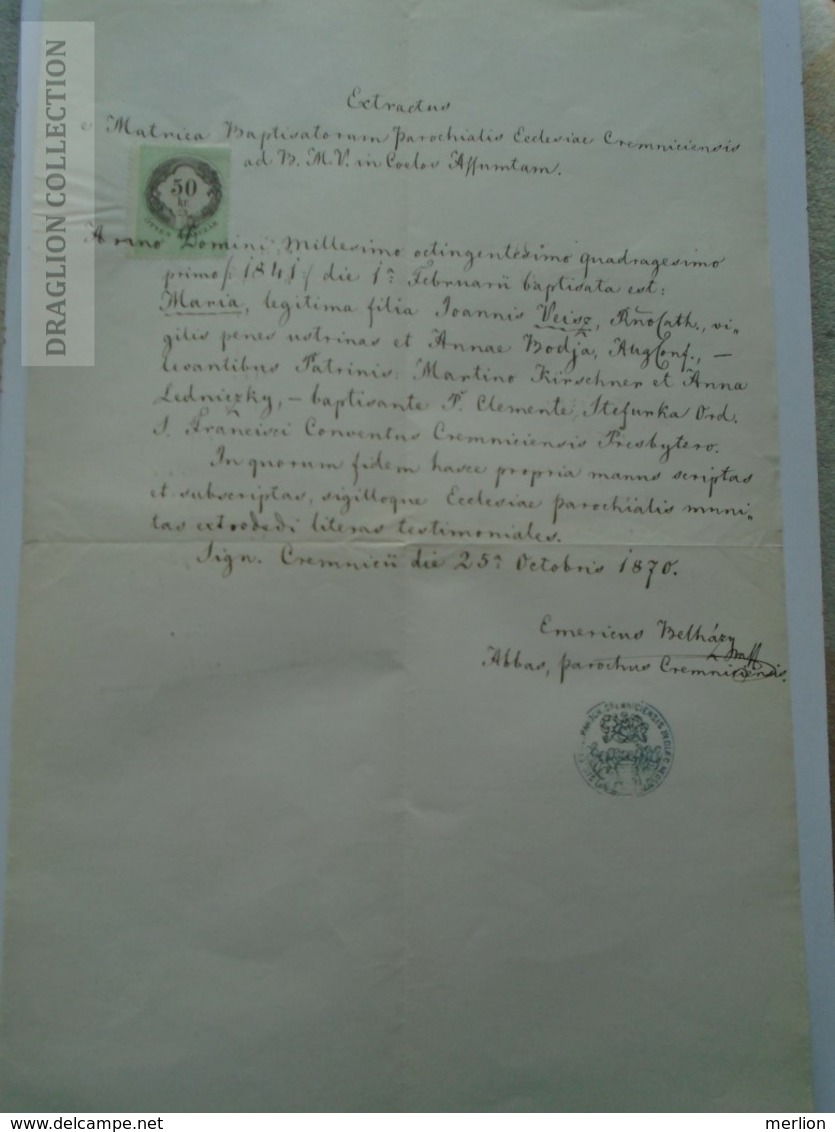 DRAGLION COLLECTION
Extractus
e Matrica Baptisatorum parochialis Ecclesiae Cremniciensis
ad B. M. V. in Coelos Assumtam.
50
kr.
Anno Domini Millesimo octingentesimo quadragesimo
primo /: 1841 :/ die 1ª Februarii baptisata est:
Maria, legitima filia Joannis Veisz, Rño Cath., vi-
gilis penes ustrinas et Annae Bodja, Aug Conf., –
levantibus Patrinis: Martino Kirschner et Anna
Ledniczky, – baptisante P. Clemente Stefunka Ord.
S. Francisci Conventus Cremniciensis Presbytero.
In quorum fidem hasce propria manu scriptas
et subscriptas, sigilloque Ecclesiae parochialis muni-
tas extradedi literas testimoniales.
Sign. Cremnicii die 25ª Octobris 1870.
Emericus Belházy
Abbas, parochus Cremniciensis.
delcampe.net
merlion